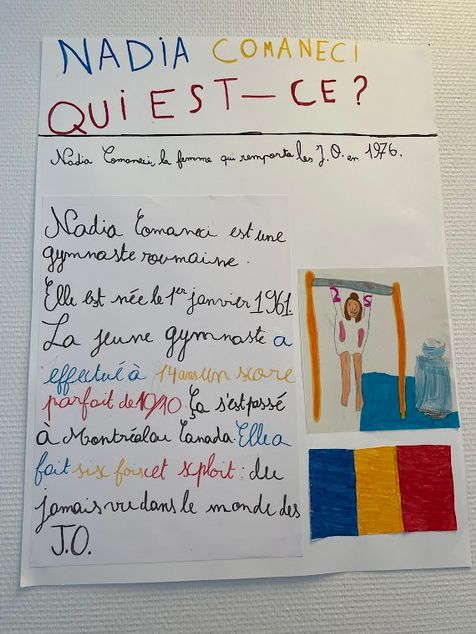 NADIA COMANECI
QUI EST-CE?
Nadia Comaneci, la femme qui remporta les J.O. en 1976.
Nadia Comaneci est une
gymnaste roumaine.
Elle est née le 1er janvier 1961.
La jeune gymnaste a
effectué à 14 ans un score
parfait de 10/10. Ça s'est passé
à Montréal au Canada. Elle a
fait six fois cet exploit: du
jamais vu dans le monde des
J.O.